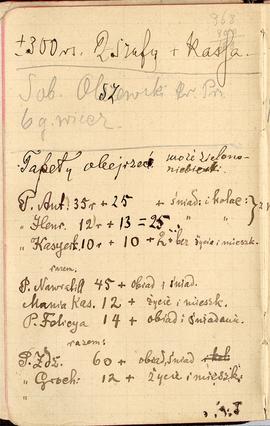 968
±300 rs. 2 szafy + kassa.
Sob. Olszewski
6 g. wiecz.
52
Tapety obejrzeć może zielono-
niebieski
P. Ant. 35 r + 25 + śniad: i kolac:
" Henr. 12 r + 13 - 25 " "
" Kasyer 10 r + 10 + życie i mieszk.
razem.
P. Nawrat 45 + obiad i śniad.
Mania Kas. 12 + życie i mieszk.
P. Felicya 14 + obiad i śniadanie.
razem:
P. Zdz. 60 + obiad, śniad
" Groch: 12 + życie i mieszk: